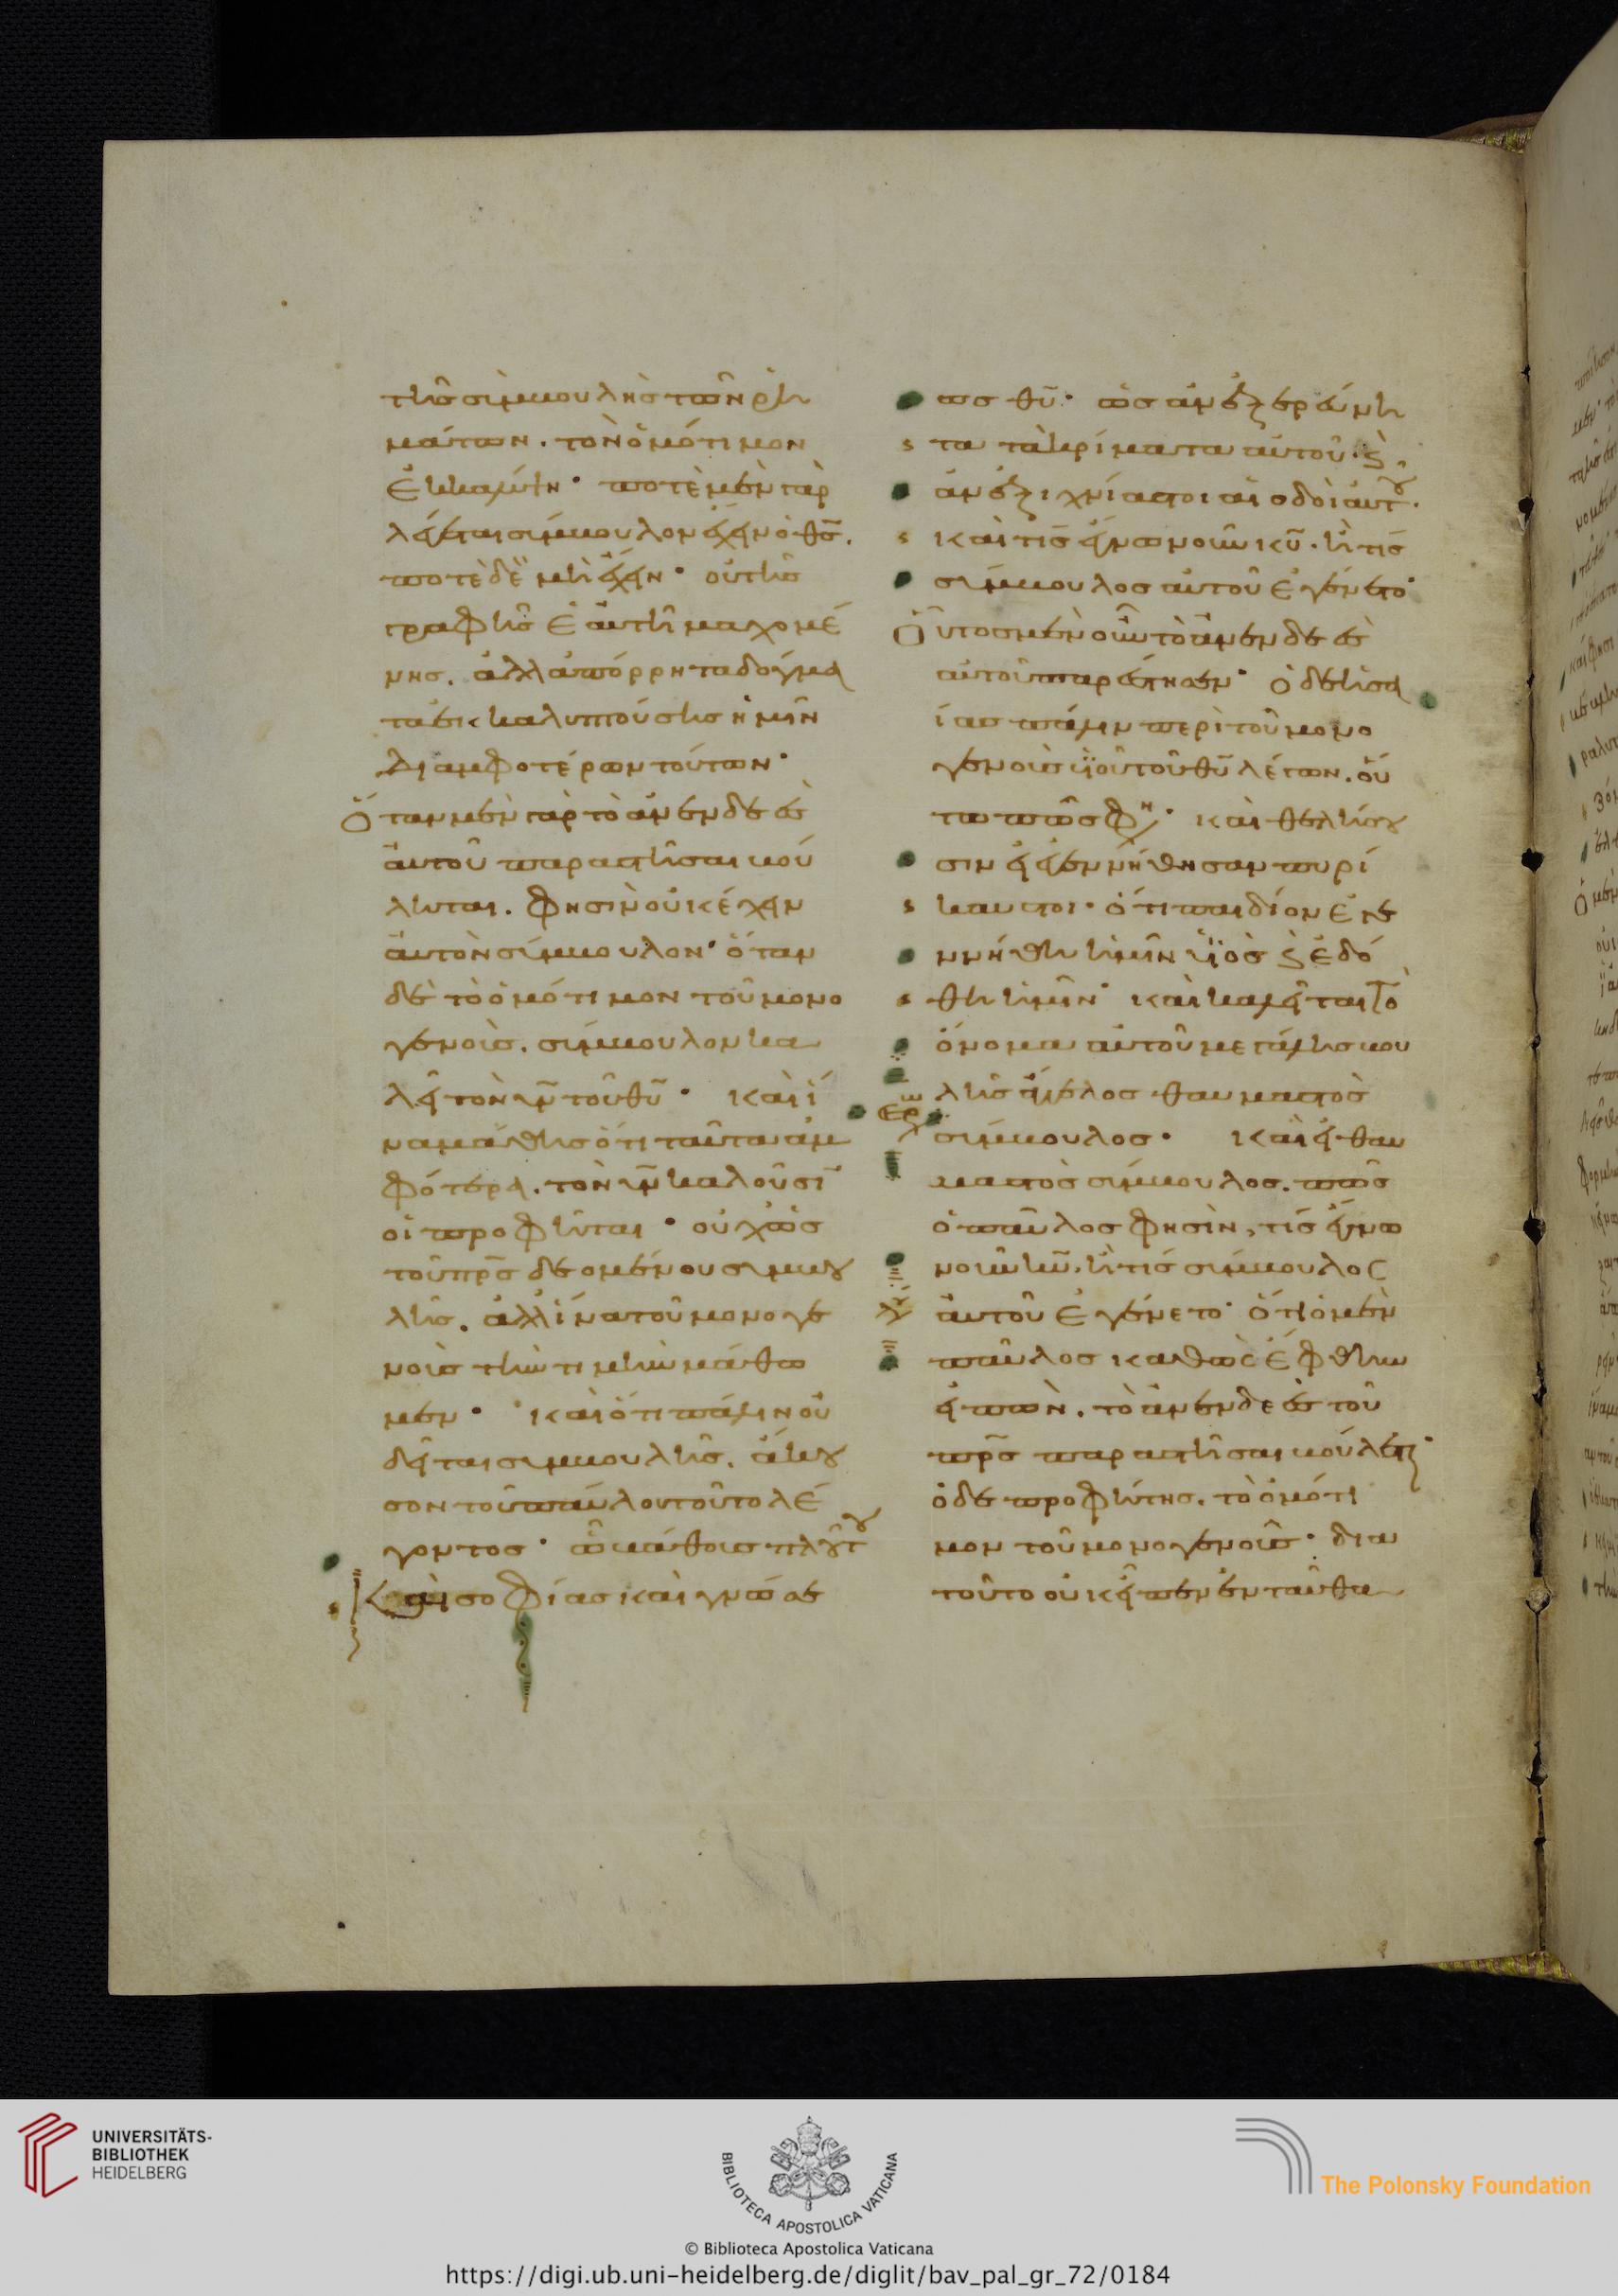 τῆς συμβουλῆς τῶν ῥη
μάτων. τὸν ὁμότιμον
ἐκκαλύπτη· ποτὲ μὲν γὰρ
λέγεται σύμβουλον ἔχειν ὁ θς̄.
ποτὲ δὲ μὴ ἔχειν· οὐ τῆς
γραφῆς ἑαυτῆ μαχομέ
νης. ἀλλ' ἀπόρρητα δόγμα
τα ἐκκαλυπτούσης ἡμῖν
δι' ἀμφοτέρων τούτων·
Ὅταν μὲν γὰρ τὸ ἀνενδεὲς
αὐτοῦ παραστῆσαι βού
ληται. φησὶν οὐκ ἔχειν
αὐτὸν σύμβουλον· ὅταν
δὲ τὸ ὁμότιμον τοῦ μονο
γενοῦς. σύμβουλον κα
λεῖ τὸν υν̄ τοῦ θῡ· καὶ ἵ
να μάθης ὅτι ταῦτα ἀμ
φότερα. τὸν υν̄ καλοῦσι
οἱ προφῆται· οὐχ ὡς
τοῦ πρς̄ δεομένου συμβου
λῆς. ἀλλ' ἵνα τοῦ μονογε
νοῦς τὴν τιμὴν μάθω
μεν· καὶ ὅτι πάλιν οὐ
δεῖται συμβουλῆς. ἄκου
σον τοῦ παύλου τοῦτο λέ
γοντος· ὦ βάθους πλούτου
Καὶ σοφίας καὶ γνώσε
ως θῡ· ὡς ἀνεξερεύνη
τα τὰ κρίματα αὐτοῦ· ϛ
ἀνεξιχνίαστοι αἱ ὁδοὶ αὐτοῦ.
καὶ τίς ἔγνω νοῦν κῡ. ἢ τίς
σύμβουλος αὐτοῦ ἐγένετο·
Οὗτος μὲν οὖν τὸ ἀνενδεὲς
αὐτοῦ παρέστησεν· ὁ δὲ ἡσα
ίας πάλιν περὶ τοῦ μονο
γενοῦς υἱοῦ τοῦ θῡ λέγων. οὕ
τω πώς φη· καὶ θελήσου
σιν εἰ ἐγεννήθησαν πυρί
καυστοι· ὅτι παιδίον ἐγε
ννήθη ἡμῖν υἱὸς ϛ ἐδό
θη ἡμῖν· καὶ καλεῖται τὸ
ὄνομα αὐτοῦ μεγάλης βου
λῆς ἄγγελος θαυμαστὸς
σύμβουλος· καὶ εἰ θαυ
μαστὸς σύμβουλος. πῶς
ὁ παῦλος φησὶν, τίς ἔγνω
νοῦν κῡ. ἢ τίς σύμβουλος
αὐτοῦ ἐγένετο· ὅτι ὁ μὲν
παῦλος καθὼς ἔφθην
εἰπὼν. τὸ ἀνενδεὲς τοῦ
πρς̄ παραστῆσαι βούλεται·
ὁ δὲ προφήτης. τὸ ὁμότι
μον τοῦ μονογενοῦς· δια
τοῦτο οὐκ εἶπεν ἐνταῦθα
UNIVERSITÄTS-
BIBLIOTHEK
HEIDELBERG
BIBLIOTECA APOSTOLICA VATICANA
© Biblioteca Apostolica Vaticana
The Polonsky Foundation
https://digi.ub.uni-heidelberg.de/diglit/bav_pal_gr_72/0184